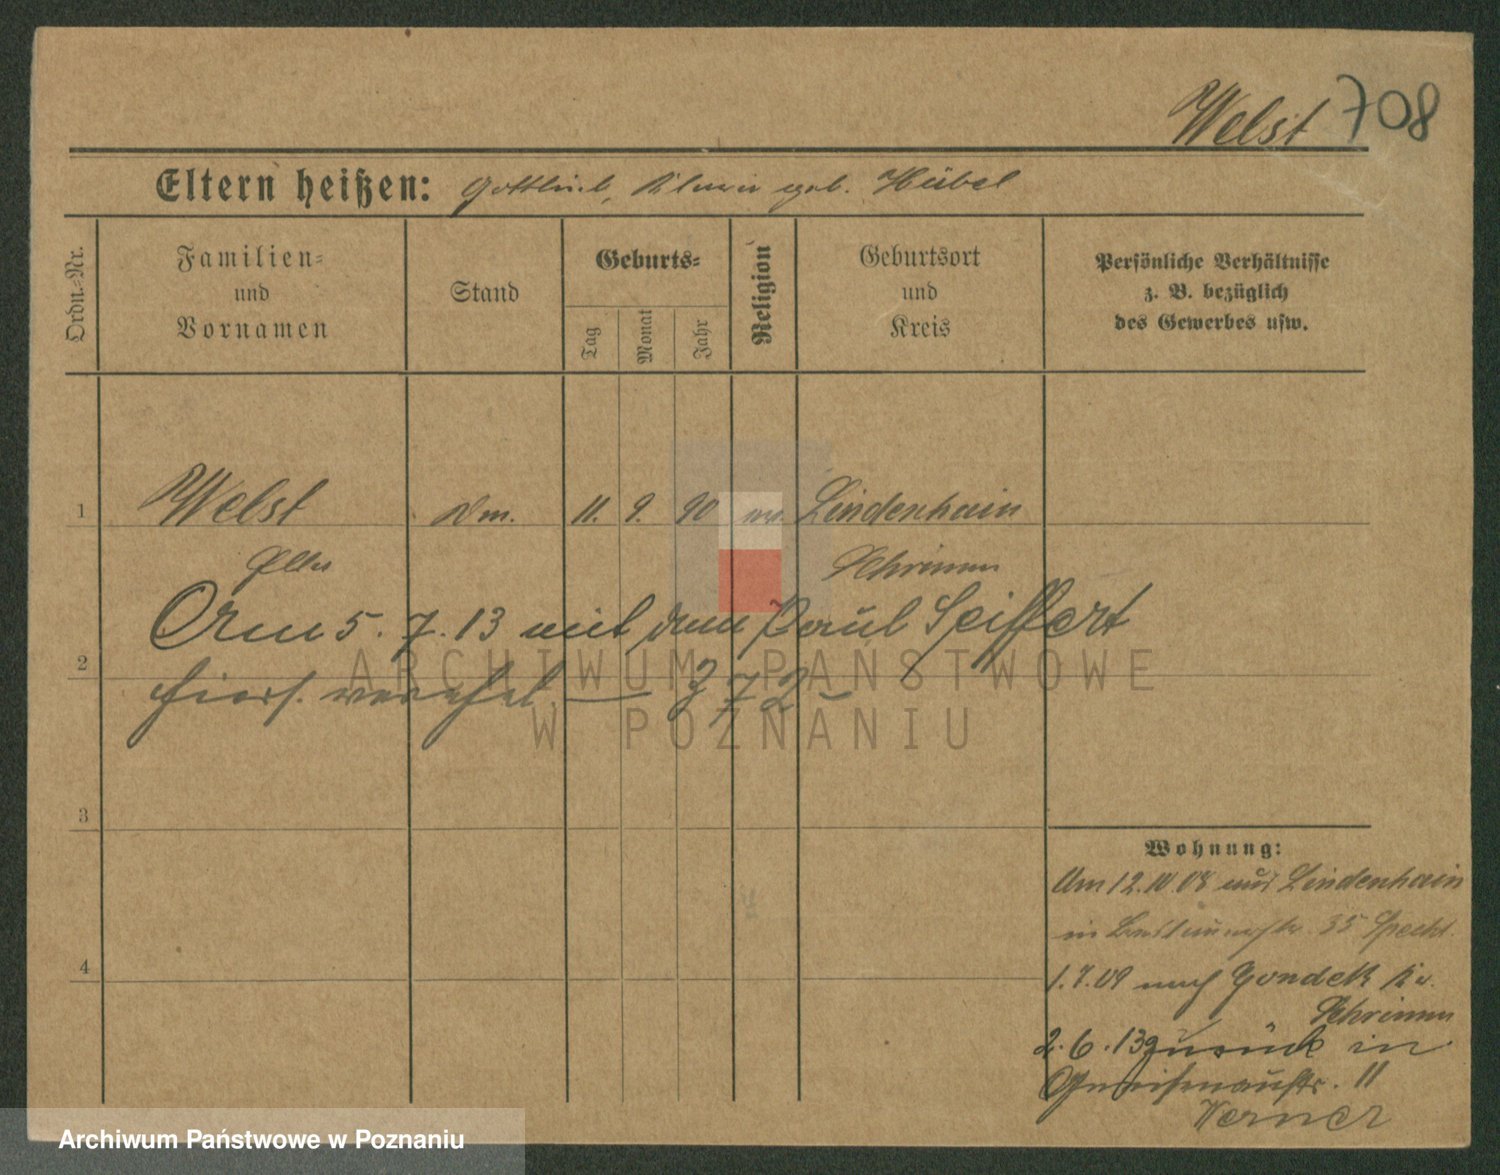 Welst 708
Eltern heißen: Gottlieb, geb. Hübel
Ordn.-Nr.
Familien- und Vornamen
Stand
Geburts-
Tag
Monat
Jahr
Religion
Geburtsort und Kreis
Persönliche Verhältnisse
z. B. bezüglich
des Gewerbes usw.
1 Welst Dm. 11. 9. 90 Lindenhain
Schrimm
Am 5. 7. 13 mit dem Paul Seiffert
2
hiers. verehel. — 372 —
3
4
Wohnung:
Am 12.10.08 aus Lindenhain
in 35 Specht.
1.7.09 nach Gondek Kr.
Schrimm
2.6.13 zurück in
Gneisenaustr. 11
Werner
ARCHIWUM PAŃSTWOWE
W POZNANIU
Archiwum Państwowe w Poznaniu